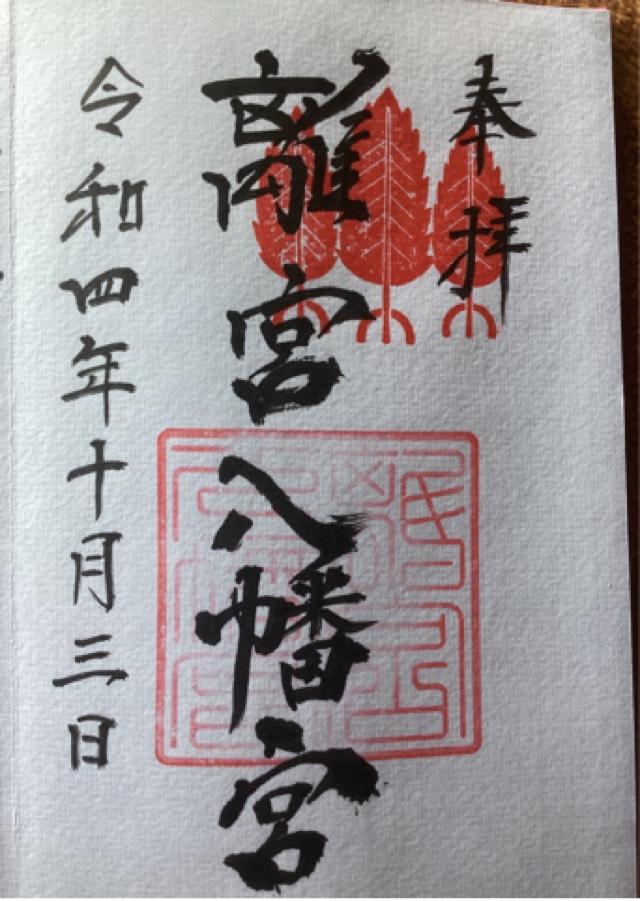 奉拝
離宮八幡宮
令和四年十月三日